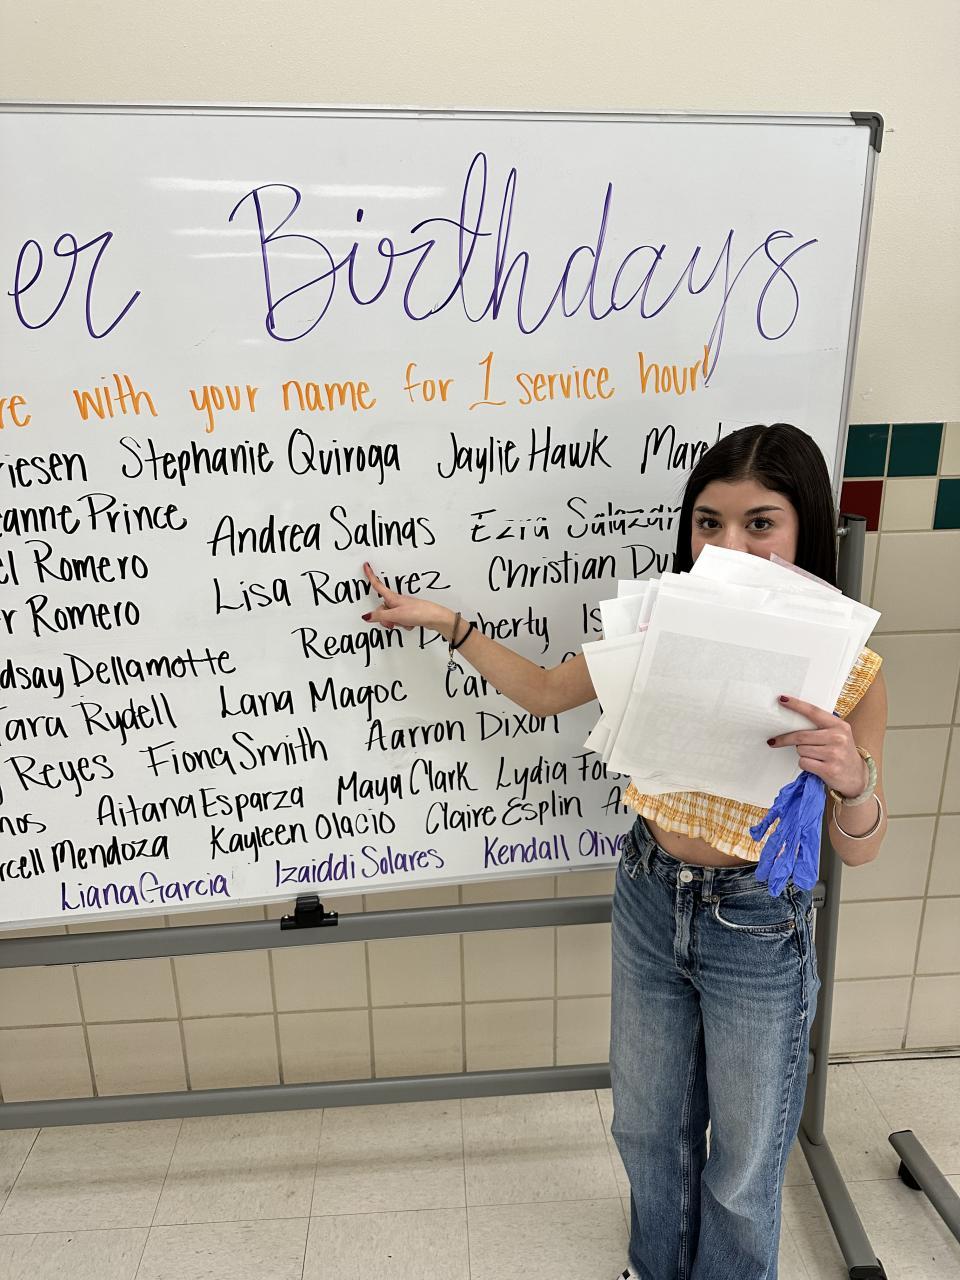 er Birthdays
re with your name for 1 service hour!
riesen Stephanie Quiroga Jaylie Hawk Mare
eanne Prince Andrea Salinas Ezra Salazar
el Romero Lisa Ramirez Christian Du
r Romero Reagan Is
dsay Dellamotte Lana Magoc Car
Tara Rydell Aarron Dixon
Reyes Fiona Smith Maya Clark Lydia Fors
nos Aitana Esparza Claire Esplin A
rcell Mendoza Kayleen Olacio Kendall Oliva
Liana Garcia Izaiddi Solares